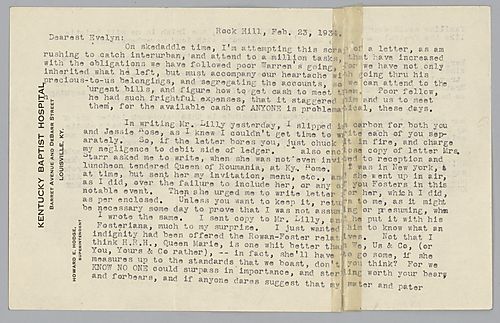 Rock Hill, Feb. 23, 193
Dearest Evelyn:
On skedaddle time, I'm attempting this scrap of a letter, as am
rushing to catch interurban, and attend to a million tasks that have increased
with the obligations we have followed poor Warren's going, for we have not only
inherited what he left, but must accompany our heartache with going thru his
precious-to-us belongings, and segregating the accounts, so we can attend to the
urgent bills, and figure how to get cash to meet them. Poor fellow,
he had such frightful expenses, that it staggered him and us to meet
them, for the available cash of ANYONE is problematical, these days.
In writing Mr. Lilly yesterday, I slipped in carbon for both you
and Jessie Rose, as I knew I couldn't get time to write each of you sep-
arately. So, if the letter bores you, just chuck it in fire, and charge
my negligence to debit side of ledger. I also enclose copy of letter Mrs.
Starr asked me to write, when she was not even invited to reception and
luncheon tendered Queen of Roumania, at Ky. Home. I was in New York, at
at time, but sent her my invitation, menu, etc. She went up in air,
as I did, over the failure to include her, or any of you Fosters in this
notable event. Then she urged me to write letter for her, which I did,
as per enclosed. Unless you want to keep it, return to me, as it might
be necessary some day to prove that I was not assuming or presuming, when
I wrote the same. I sent copy to Mr. Lilly, and he put it with his
Fosteriana, much to my surprise. I just wanted him to know what an
indignity had been offered the Rowan-Foster relatives. Not that I
think H.R.H., Queen Marie, is one whit better than We, Us & Co, (or
You, Yours & Co rather), -- in fact, she'll have to go some, if she
measures up to the standards that we boast, don't you think? For we
KNOW NO ONE could surpass in importance, and sterling worth your bears
and forbears, and if anyone dares suggest that my mater and pater
KENTUCKY BAPTIST HOSPITAL
BARRET AVENUE AND DEBARR STREET
LOUISVILLE, KY.
HOWARD E. HODGE,
SUPERINTENDENT